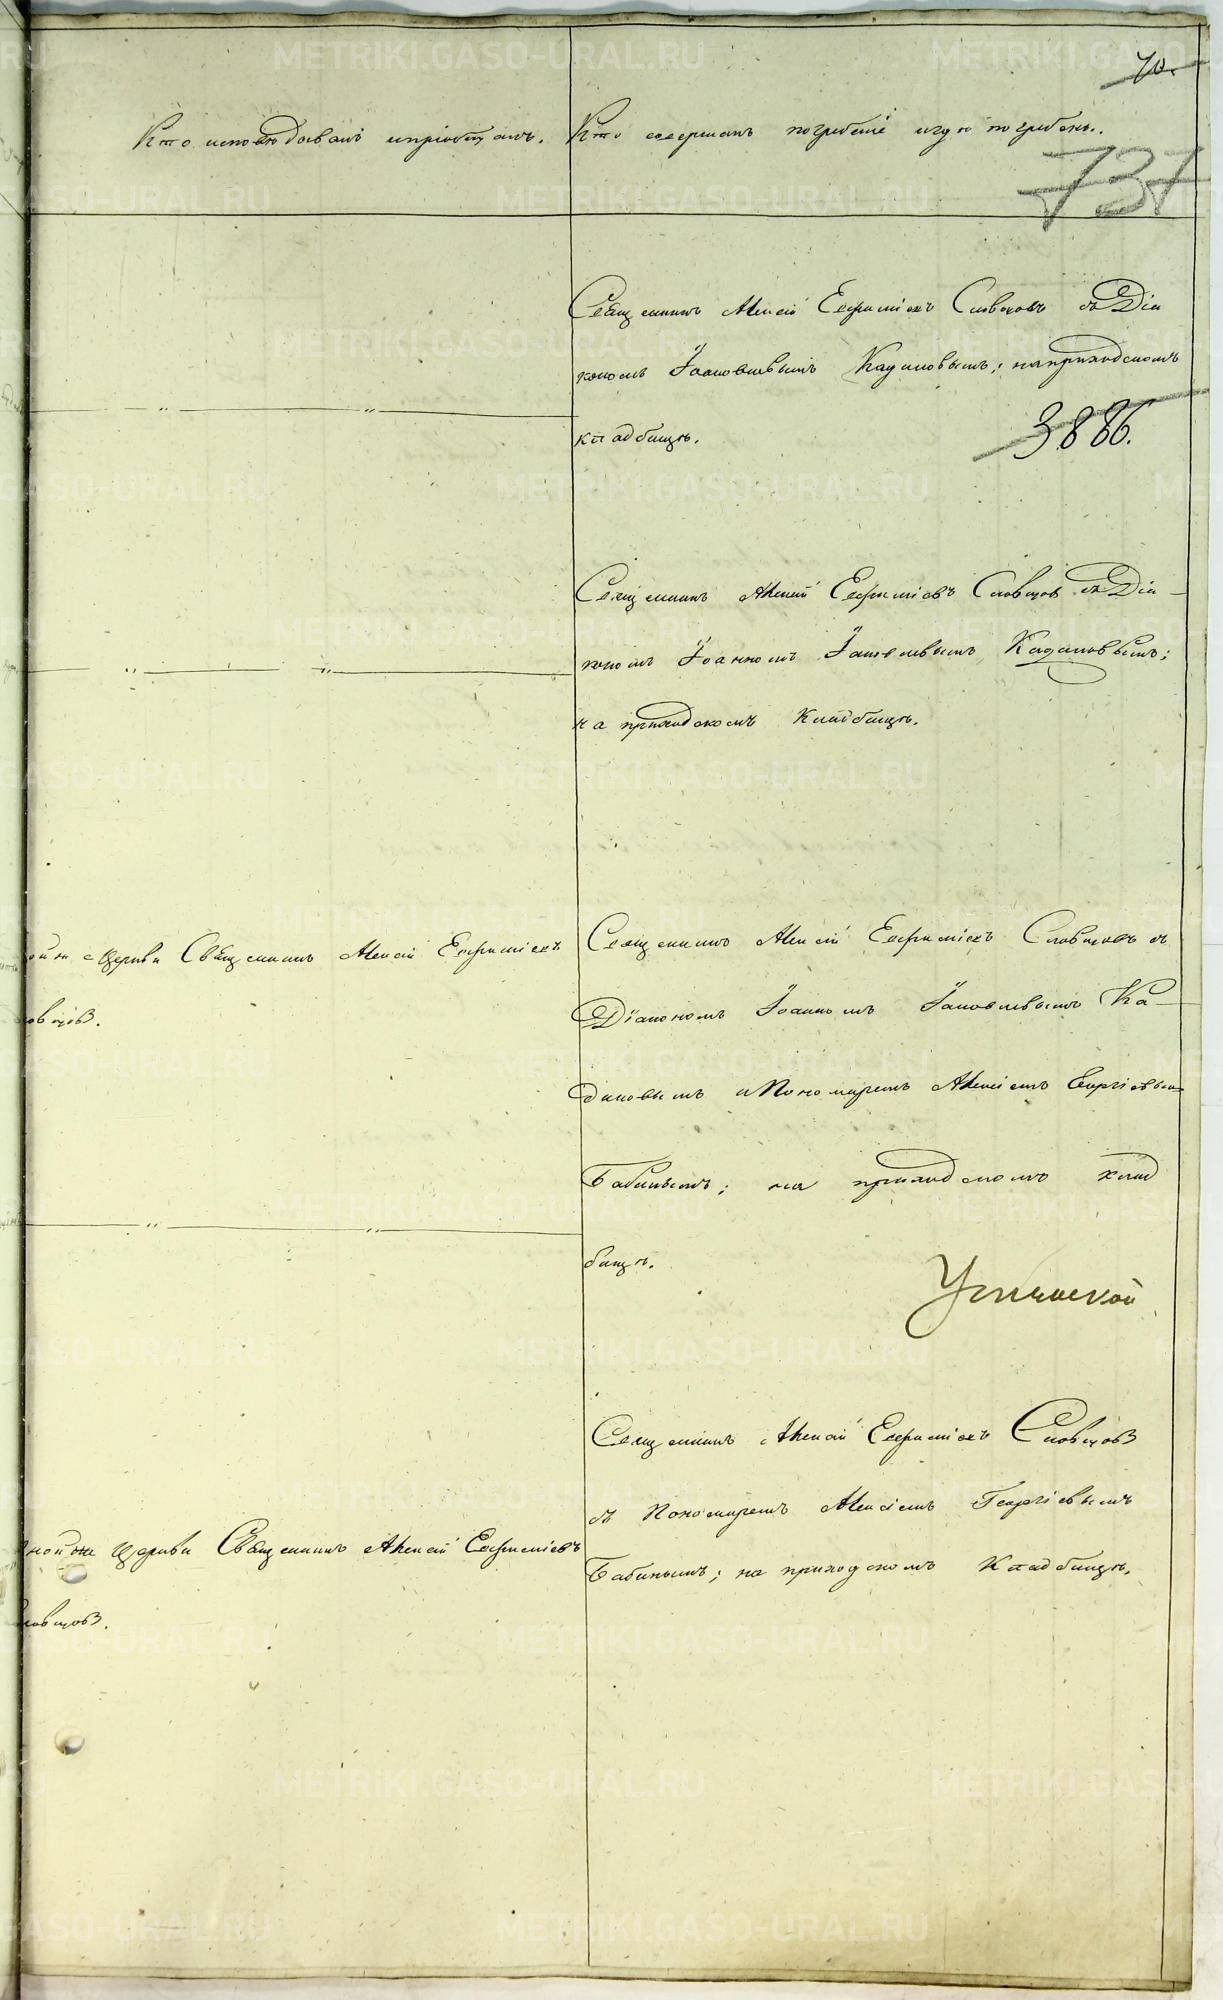 70.
Кто исповѣдывалъ и пріобщалъ.
Кто совершалъ погребеніе и гдѣ погребенъ.
737
Священникъ Алексій Евфиміевъ Словцовъ съ Діа
кономъ Іаковлевымъ Кадиловымъ; на приходскомъ
кладбищѣ.
3886.
Священникъ Алексій Евфиміевъ Словцов съ Діа-
кономъ Іоанномъ Іаковлевымъ Кадиловымъ;
на приходскомъ кладбищѣ.
Церкви Священникъ Алексій Евфиміевъ
овцовъ.
Священникъ Алексій Евфиміевъ Словцовъ съ
Діакономъ Іоанномъ Іаковлевымъ Ка-
диловымъ и Пономаремъ Алексіемъ Георгіевым
Бабинымъ; на приходскомъ клад
бищѣ.
Священникъ Алексій Евфиміевъ Словцовъ
съ Пономаремъ Алексіемъ Георгіевымъ
Бабинымъ; на приходскомъ Кладбищѣ.
ной же Церкви Священникъ Алексій Евфиміевъ
ловцовъ.
METRIKI.GASO-URAL.RU